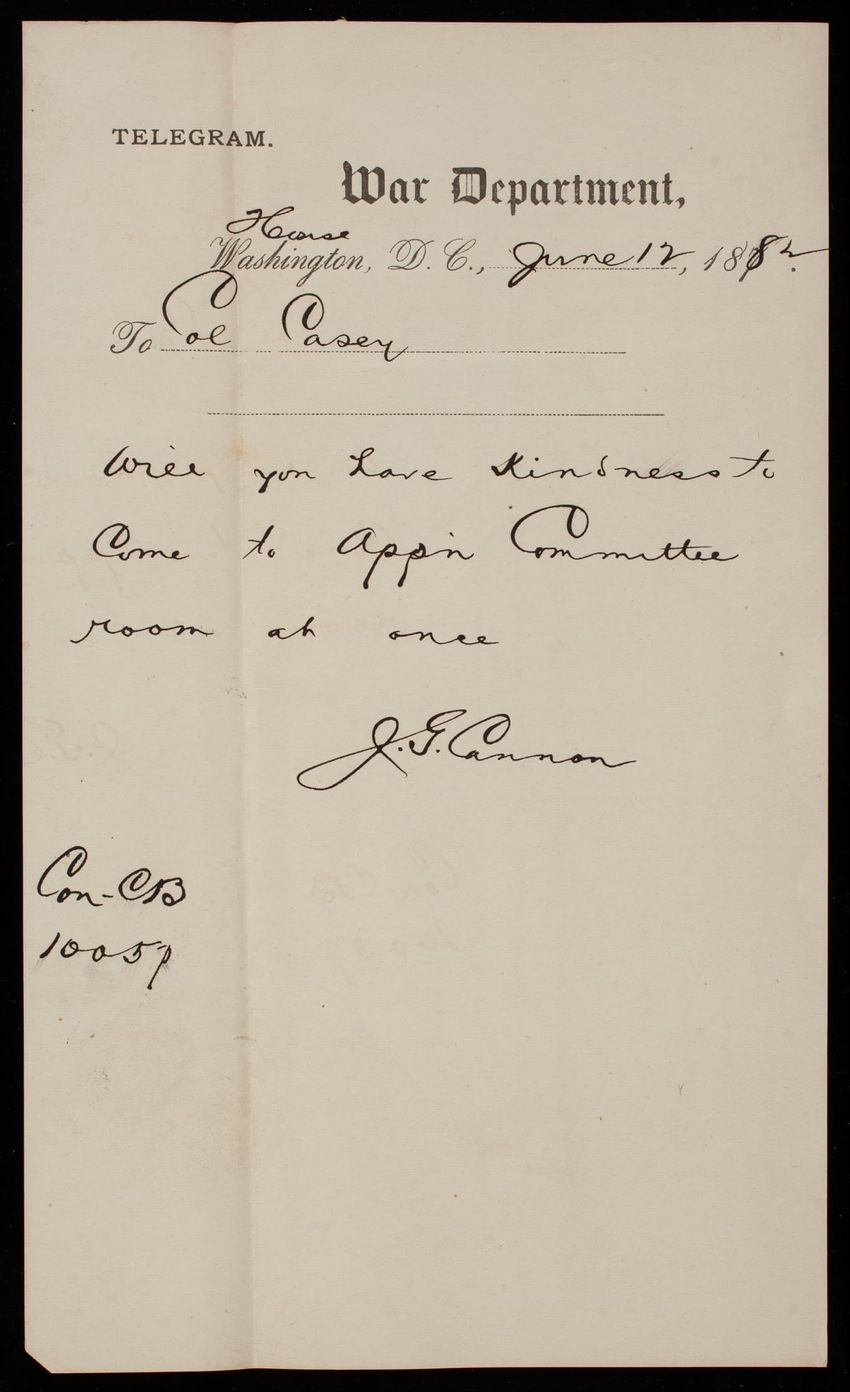 TELEGRAM.
War Department,
House
Washington, D. C., June 12, 1882.
To Col Casey
Will you have kindness to
Come to App'n Committee
room at once
J. G. Cannon
Con-CB
1005p